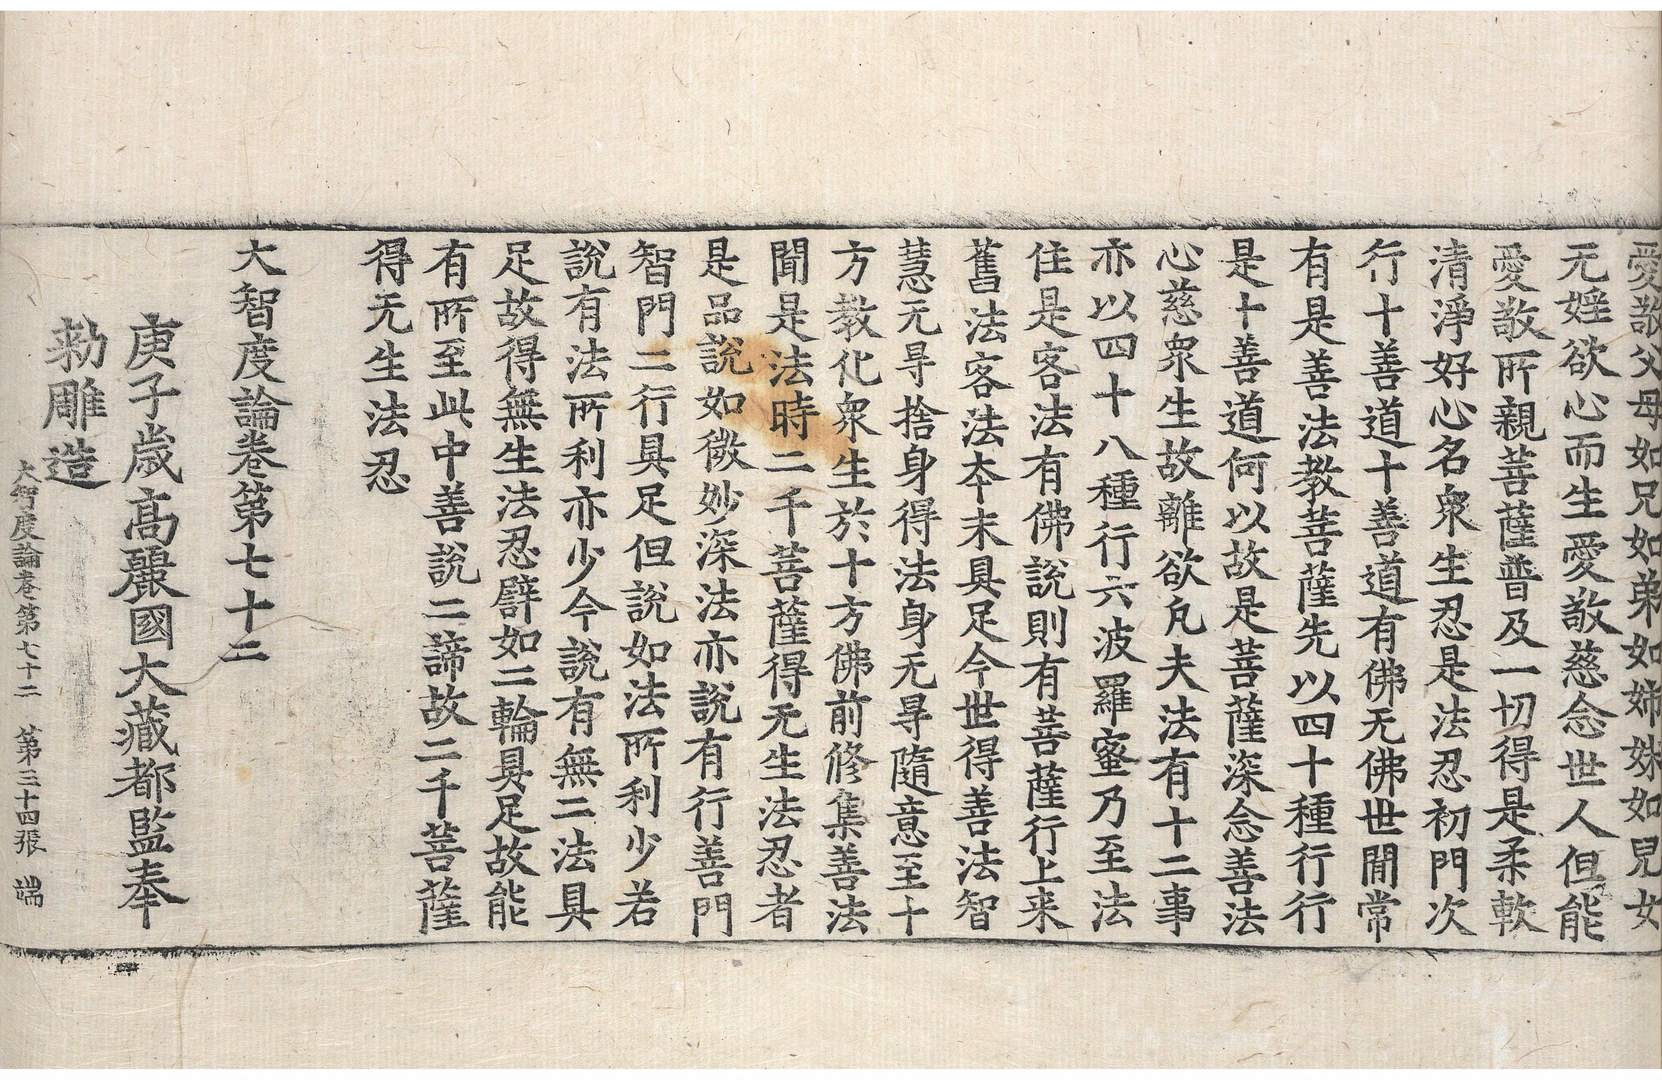 愛敬父母如兄如弟如姉妹如兒女
无婬欲心而生愛敬慈念世人但能
愛敬所親菩薩普及一切得是柔軟
清淨好心名衆生忍是法忍初門次
行十善道十善道有佛无佛世閒常
有是善法教菩薩先以四十種行行
是十善道何以故是菩薩深念善法
心慈衆生故離欲凡夫法有十二事
亦以四十八種行六波羅蜜乃至法
住是客法有佛說則有菩薩行上来
舊法客法本末具足今世得善法智
慧无㝵捨身得法身无㝵隨意至十
方教化衆生於十方佛前修集善法
聞是法時二千菩薩得无生法忍者
是品說如微妙深法亦說有行善門
智門二行具足但說如法所利少若
說有法所利亦少今說有無二法具
足故得無生法忍譬如二輪具足故能
有所至此中善說二諦故二千菩薩
得无生法忍
大智度論卷第七十二
庚子歲高麗國大藏都監奉
勑雕造
大智度論卷第七十二 第三十四張 端